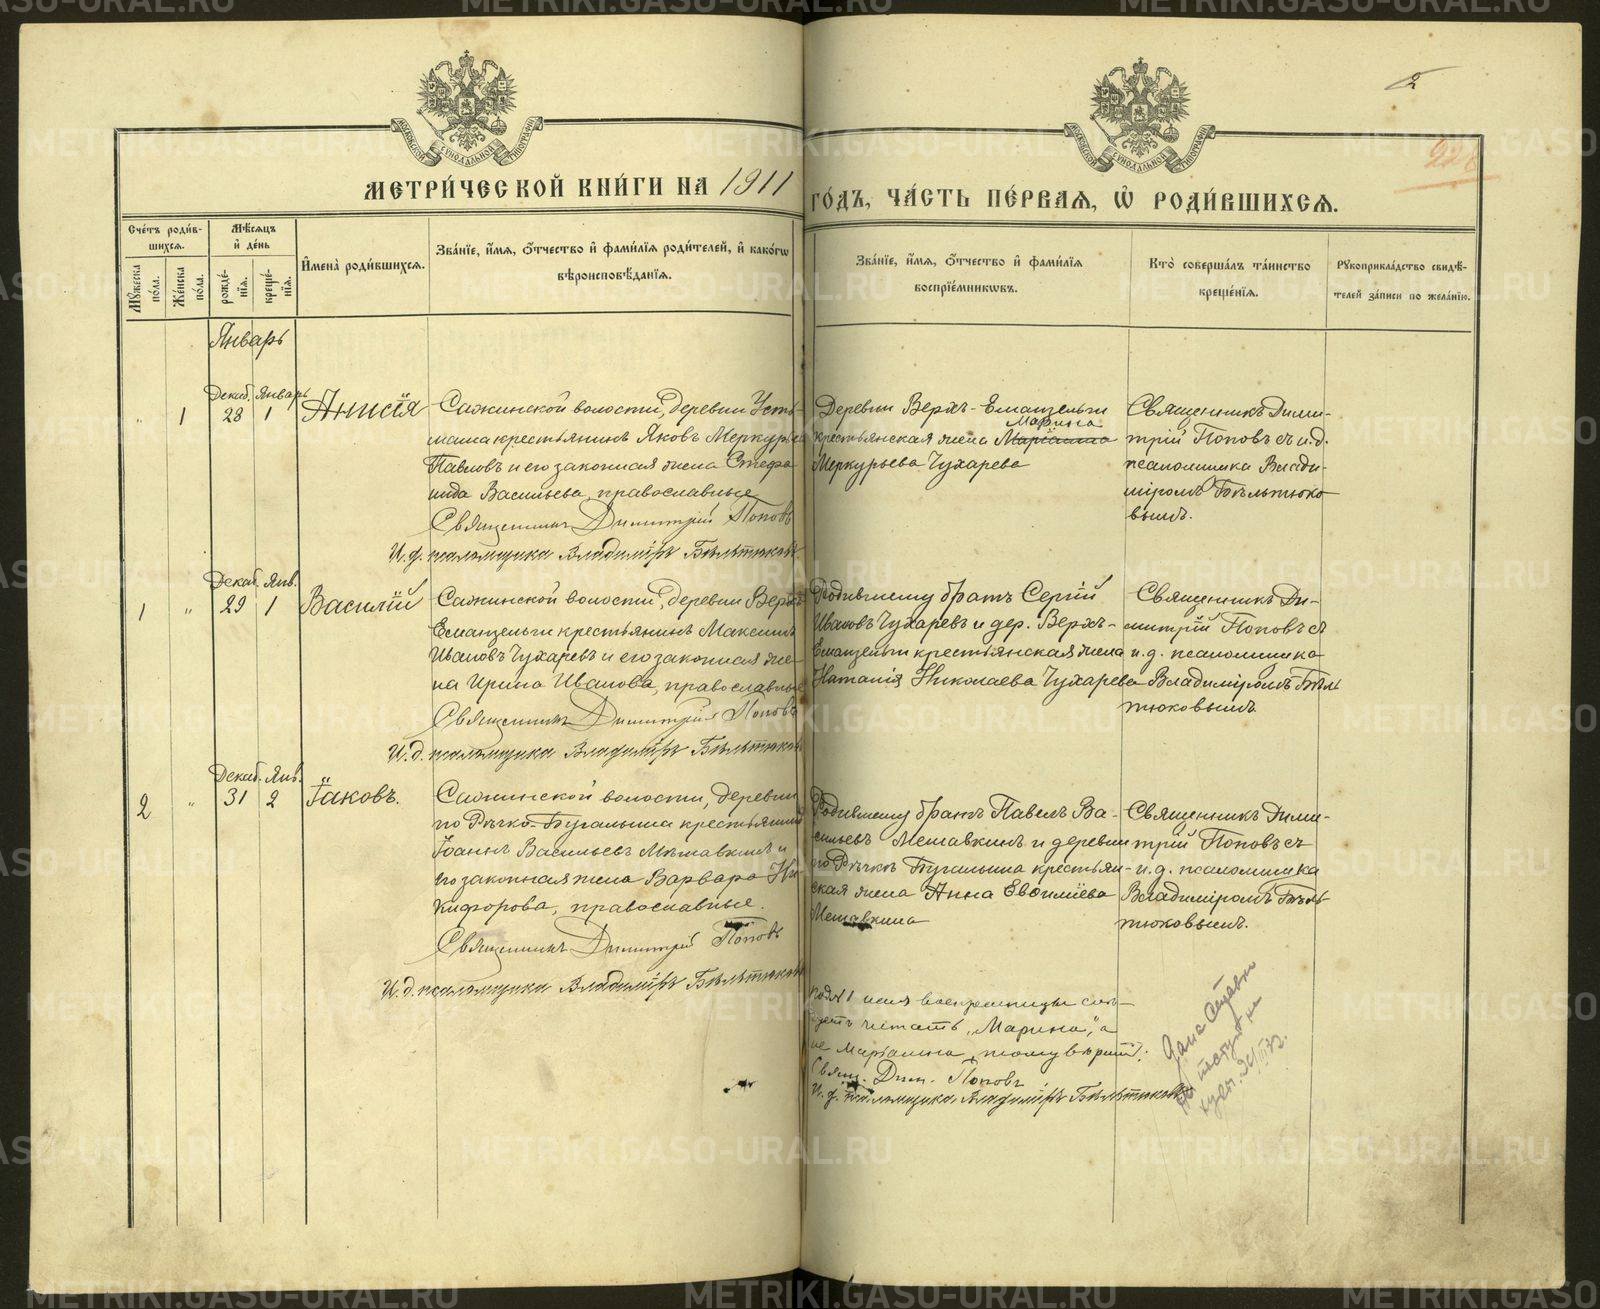 МЕТРИ́ЧЕСКОЙ КНИ́ГИ НА 1911
ГО́ДЪ, ЧА́СТЬ ПЕ́РВАЯ, Ѡ҆ РОДИ́ВШИХСЯ.
2
МОСКОВСКОЙ СѴНОДАЛЬНОЙ ТИПОГРАФІИ
МОСКОВСКОЙ СѴНОДАЛЬНОЙ ТИПОГРАФІИ
Сче́тъ роди́в-
шихся.
Мꙋ́жеска по́ла.
Же́нска по́ла.
Мѣ́сяцъ
и҆ де́нь
рожде́-
нїя.
креще́-
нїя.
И҆мена̀ роди́вшихся.
Зва́нїе, и҆́мя, ѻ҆́тчество и҆ фами́лїя роди́телей, и҆ како́гѡ
вѣроисповѣ́данїя.
Зва́нїе, и҆́мя, ѻ҆́тчество и҆ фами́лїя
воспрїе́мникѡвъ.
Кто̀ соверша́лъ та́инство
креще́нїя.
Рꙋкоприкла́дство свидѣ́-
телей за́писи по жела́нїю.
Январь
Декаб. Январь
" 1 28 1 Анисія
Сажинской волости, деревни Усть-
маша крестьянинъ Яковъ Меркурьевъ
Павловъ и его законная жена Стефа
нида Васильева, православные
Священникъ Димитрій Поповъ
И. д. псаломщика Владиміръ Бѣльтюковъ
Деревни Верхъ-Еманзельги
Марина
крестьянская жена Маріанна
Меркурьева Чухарева
Священникъ Дими-
трій Поповъ съ и.д.
псаломщика Влади-
міромъ Бѣльтюко
вымъ.
Декаб. Янв.
1 " 29 1 Василій
Сажинской волости, деревни Верхъ
Еманзельги крестьянинъ Максимъ
Ивановъ Чухаревъ и его законная же-
на Ирина Иванова, православные
Священникъ Димитрій Поповъ
И. д. псаломщика Владиміръ Бѣльтюковъ
Родившему братъ Сергій
Ивановъ Чухаревъ и дер. Верхъ-
Еманзельги крестьянская жена
Наталія Николаева Чухарева
Священникъ Ди-
митрій Поповъ съ
и. д. псаломщика
Владиміромъ Бѣль
тюковымъ.
Декаб. Янв.
2 " 31 2 Іаковъ.
Сажинской волости, деревни
по Рѣчкѣ Бугалыша крестьянинъ
Іоаннъ Васильевъ Мешавкинъ и
его законная жена Варвара Ни-
кифорова, православные.
Священникъ Димитрій Поповъ
И. д. псаломщика Владиміръ Бѣльтюковъ
Родившему братъ Павелъ Ва-
сильевъ Мешавкинъ и деревни
по Рѣчкѣ Бугалыша крестьян-
ская жена Анна
Мешавкина
Священникъ Дими-
трій Поповъ съ
и. д. псаломщика
Владиміромъ Бѣль
тюковымъ.
под №1 имя воспремницы слѣ-
дуетъ читать „Марина", а
не Маріанна, тому вѣритъ:
Свящ. Дим. Поповъ
И. д. псаломщика Владиміръ Бѣльтюковъ
METRIKI.GASO-URAL.RU